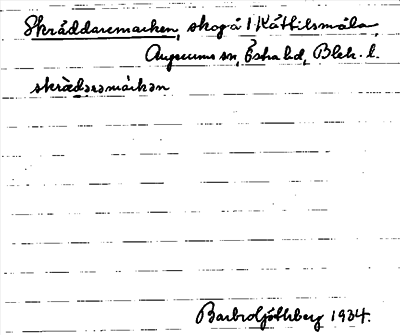 Skräddaremacken, skog å 1 Kåtbilsmåla,
Augerums sn, Östra hd, Blek. l.
skrädaramákan
Barbro Götlberg 1934.